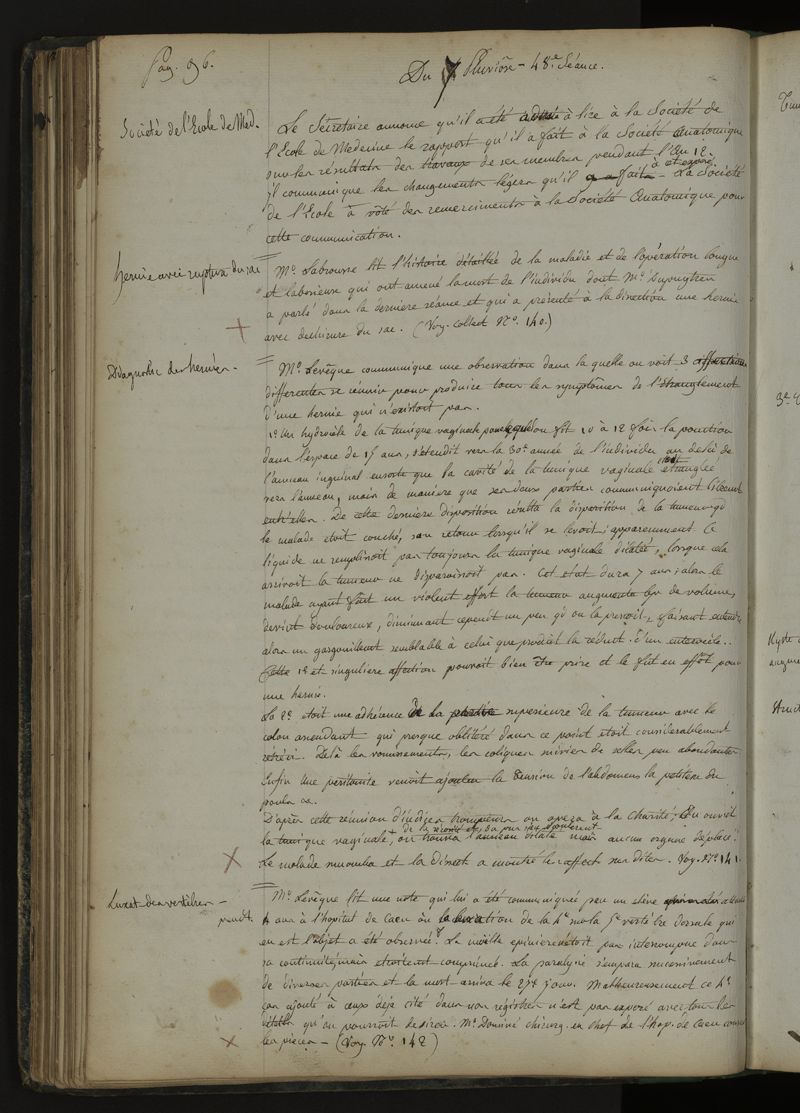 Pag. 96.
Du 7 Pluviôse - 48e Séance.
Société de l'Ecole de Med.
Le Secretaire annonce qu'il a été à lire à la Société de
l'Ecole de Medecine le rapport qu'il a fait à la Société Anatomique
sur les résultats des travaux de ses membres pendant l'An 12.
il communique les changements légers qu'il a faits - La Société
de l'Ecole à voté des remerciments à la Société Anatomique pour
cette communication.
hernie avec rupture du sac
Mr. Labrousse lit l'histoire détaillée de la maladie et de l'opération longue
et laborieuse qui ont amené la mort de l'individu dont Mr. Dupuytren
a parlé dans la derniere séance et qui a présenté à la direction une hernie
avec dechirure du sac. (Voy. Collect No. 140.)
Diagnostic des hernies.
Mr. Levêque communique une observation dans la quelle on voit 3 affections
differentes se réunir pour produire tous les symptômes de l'étranglement
d'une hernie qui n'existoit pas.
1o Un hydrocèle de la tunique vaginale fit 10 à 12 fois la ponction
dans l'espace de 17 ans, s'étendit vers la 30e année de l'individu au delà de
l'anneau inguinal ensorte que la cavité de la tunique vaginale étoit étranglée
vers l'anneau, mais de maniere que ses deux parties communiquoient librement
entr'elles. De cette derniere disposition résulta la disparition de la tumeur qd
le malade etoit couché, son retour lorsqu'il se levoit; apparemment ce
liquide ne remplissoit pas toujours la tunique vaginale dilatée, lorsque cela
arrivoit la tumeur ne disparoissoit pas. Cet état dura 7 ans; alors le
malade ayant fait un violent effort la tumeur augmenta de volume,
devint douloureux, diminuant un peu qd on la pressoit, faisant entendre
alors un gargouillement semblable à celui que produit la réduct. d'un enterocèle.
Cette 1e et singuliere affection pouvoit bien être prise et le fut en effet pour
une hernie.
La 2e etoit une adhérence de la partie superieure de la tumeur avec le
colon ascendant qui presque oblitéré dans ce point etoit considerablement
rétréci. De là les vomissements, les coliques de selles peu abondantes
Enfin une peritonite venoit ajouter la tension de l'abdomen la petitesse du
pouls &a.
D'après cette réunion d'indices trompeurs on opéra à la charité; On ouvrit
la tunique vaginale, on trouva l'anneau dilaté mais aucun organe déplacé.
Le malade mourut et la dissect a montré les affect sus dites. Voy. No. 141.
Luxat. des vertèbres -
Mr. Levêque lit une note qui lui a été communiquée par un elève
ans à l'hopital de Caen où la luxation de la 4e sur la 5e vertèbre dorsale qui
en est l'objet a été observée. La moëlle epiniere n'étoit pas interrompue dans
sa continuité; mais etoit comprimée. La paralysie s'empara successivement
de diverses parties et la mort arriva le jour. Malheureusement ce 4e
cas ajouté à ceux déjà cité dans nos registres n'est pas exposé avec tous les
détails qu'on pourroit desirer. Mr. Dominé chirurg. en chef de l'hop. de Caen conserve
les pièces - (Voy. No. 142)